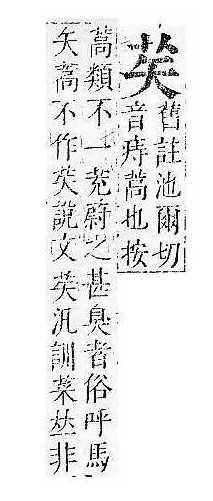 舊註池爾切
音痔蒿也按
蒿類不一茺蔚之甚臭者俗呼馬
矢蒿不作說文汎訓菜丛非